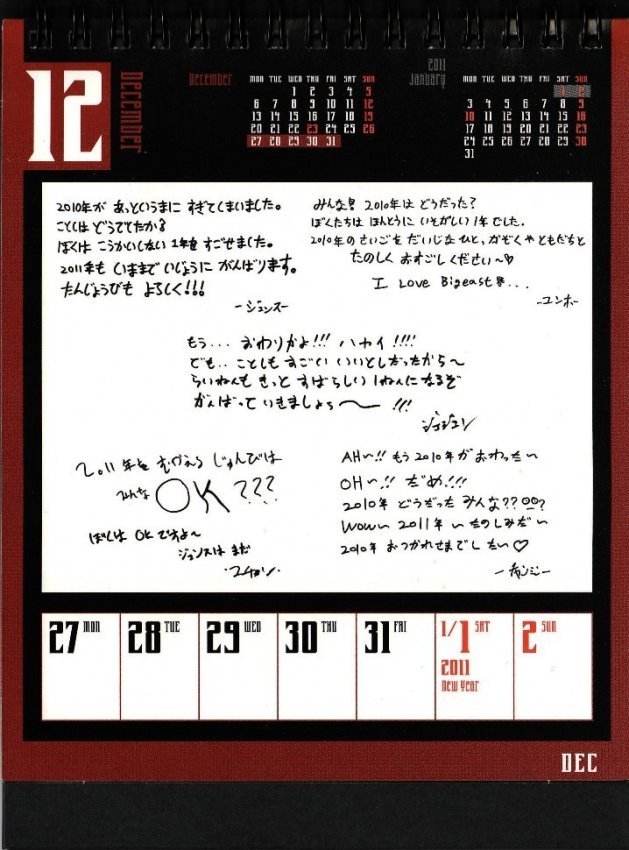 12
December
December
MON TUE WED THU FRI SAT SUN
1 2 3 4 5
6 7 8 9 10 11 12
13 14 15 16 17 18 19
20 21 22 23 24 25 26
27 28 29 30 31
2011
January
MON TUE WED THU FRI SAT SUN
1 2
3 4 5 6 7 8 9
10 11 12 13 14 15 16
17 18 19 20 21 22 23
24 25 26 27 28 29 30
31
2010年が あっというまに すぎてしまいました。
ことしは どうでしたか?
ぼくは こうかいしない 1年を すごせました。
2011年も いままで いじょうに がんばります。
たんじょうびも よろしく!!!
-ジュンス-
みんな!! 2010年は どうだった?
ぼくたちは ほんとうに いそがしい 1年でした。
2010年の さいごを だいじな ひと、かぞくや ともだちと
たのしく おすごしください〜♡
I Love Bigeast!!...
-ユンホ-
もう... おわりかよ!!! ハヤイ!!!!
でも.. ことしも すごい いいとしだったから〜
らいねんも きっと すばらしい 1ねんになるぞ
がんばって いきましょぅ〜 !!!
ジェジュン
2011年を むかえる じゅんびは
みんな OK???
ぼくは OKですよ〜
ジュンスは まだ
・ユチョン・
AH〜!! もう 2010年が おわった〜
OH〜!! だめ!!!
2010年 どうだった みんな???
Wow〜 2011年〜 たのしみだ〜
2010年 おつかれさまでした〜♡
-チャンミン-
27 MON
28 TUE
29 WED
30 THU
31 FRI
1/1 SAT
2011
New Year
2 SUN
DEC